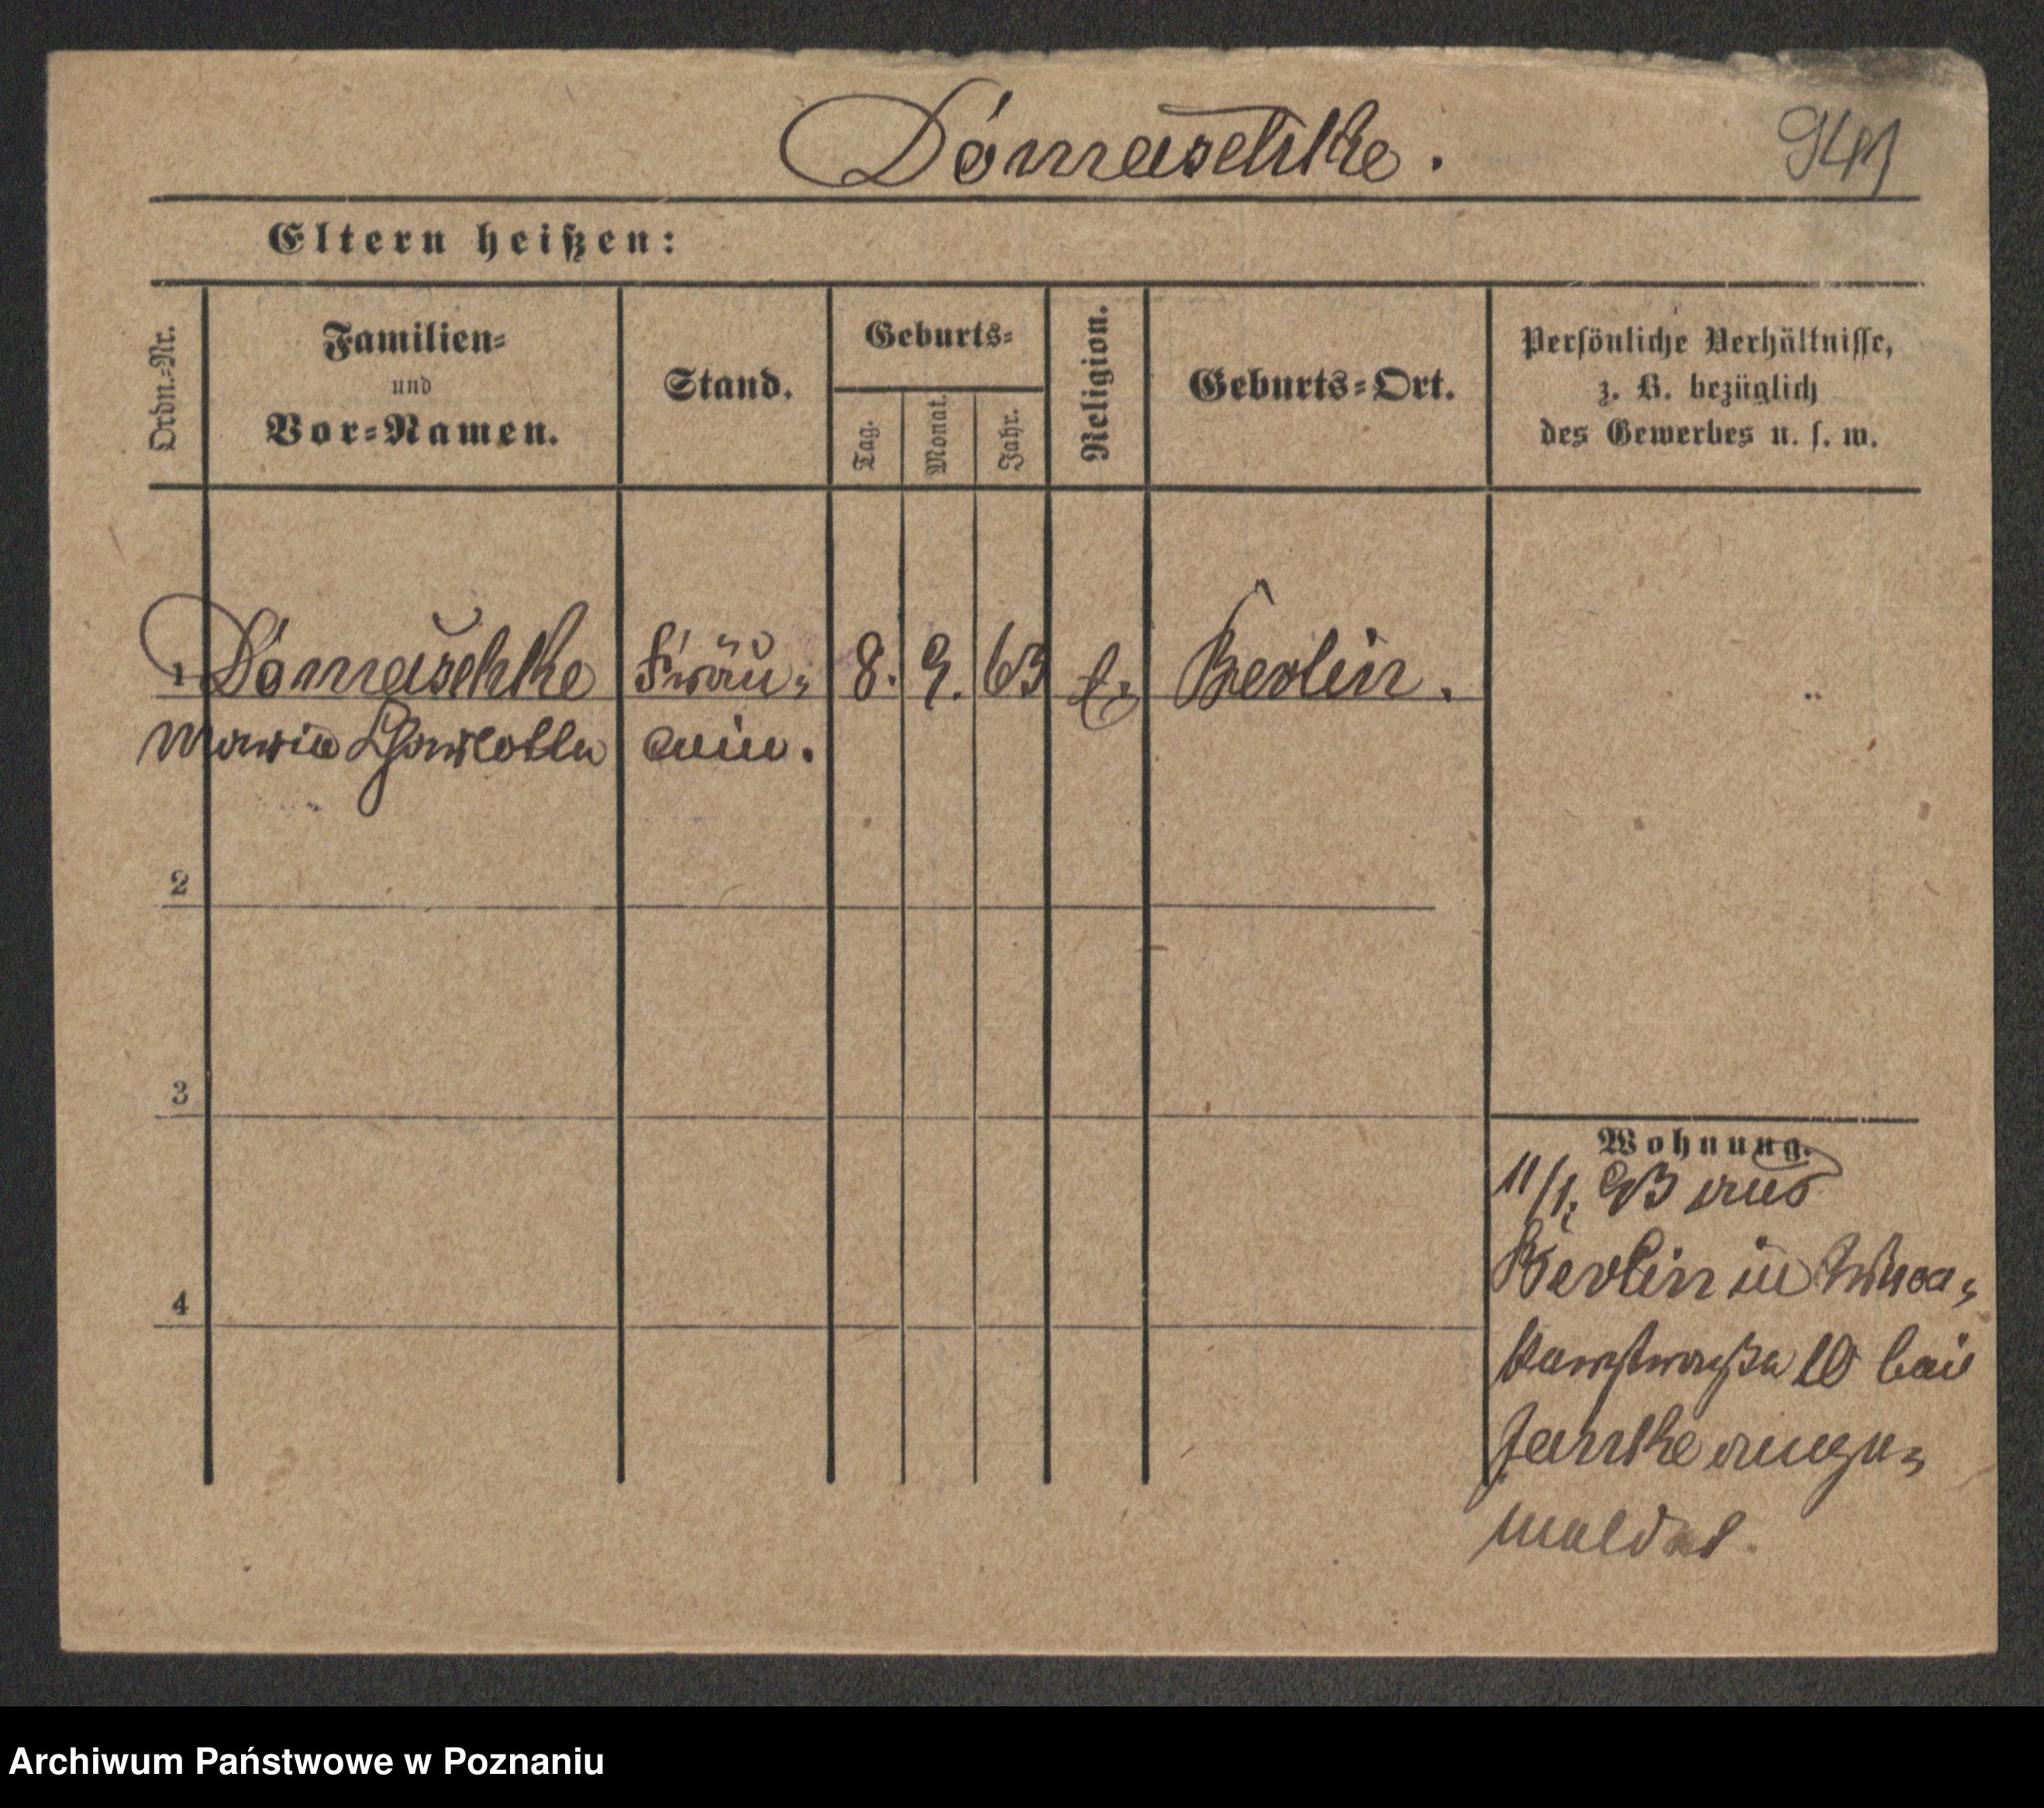 Domaschke.
941
Eltern heißen:
Ordn.-Nr.
Familien-
und
Vor-Namen.
Stand.
Geburts-
Tag.
Monat.
Jahr.
Religion.
Geburts-Ort.
Persönliche Verhältnisse,
z. B. bezüglich
des Gewerbes u. s. w.
1 Domaschke Fräu- 8. 9. 63 Berlin.
Marie Charlotte lein.
2
3
4
Wohnung.
11/1. 93 aus
Berlin in
10 bei
Jahnke ange-
meldet.
Archiwum Państwowe w Poznaniu